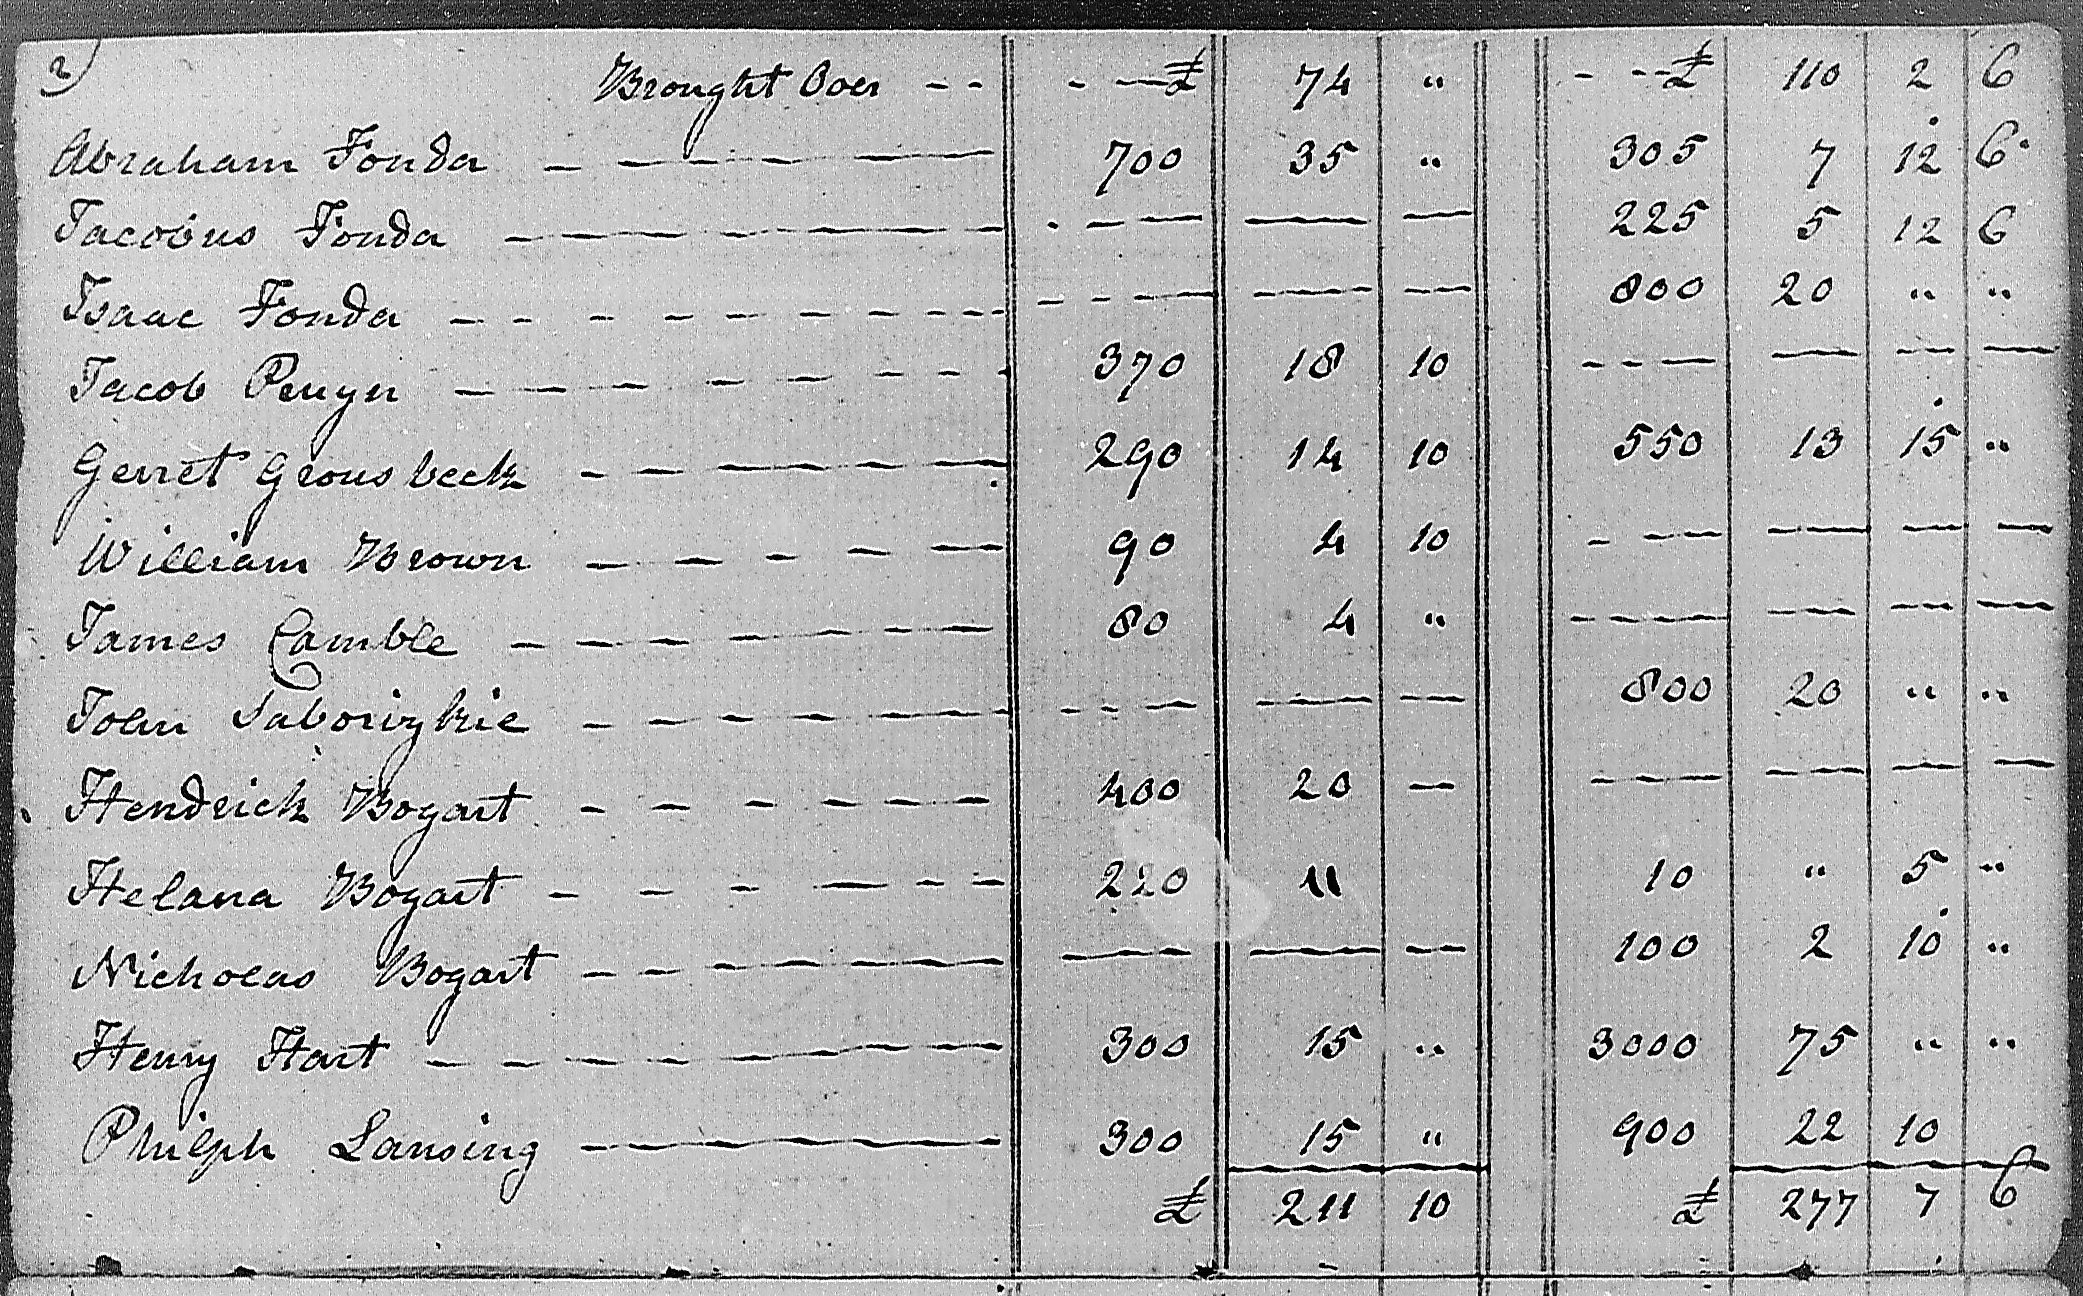 2) Brought Over - - - — £ 74 " - - - £ 110 2 6
Abraham Fonda — 700 35 " 305 7 12 6
Jacobus Fonda — — — — 225 5 12 6
Isaac Fonda — — — — 800 20 " "
Jacob Pruyn — 370 18 10 — — — —
Gerret Grousbeck — 290 14 10 550 13 15 "
William Brown — 90 4 10 — — — —
James Camble — 80 4 " — — — —
John Taborizkie — — — — 800 20 " "
Hendrick Bogart — 400 20 — — — — —
Helana Bogart — 220 11 10 " 5 "
Nicholas Bogart — — — — 100 2 10 "
Henry Hart — 300 15 " 3000 75 " "
Philiph Lansing — 300 15 " 900 22 10
£ 211 10 £ 277 7 6